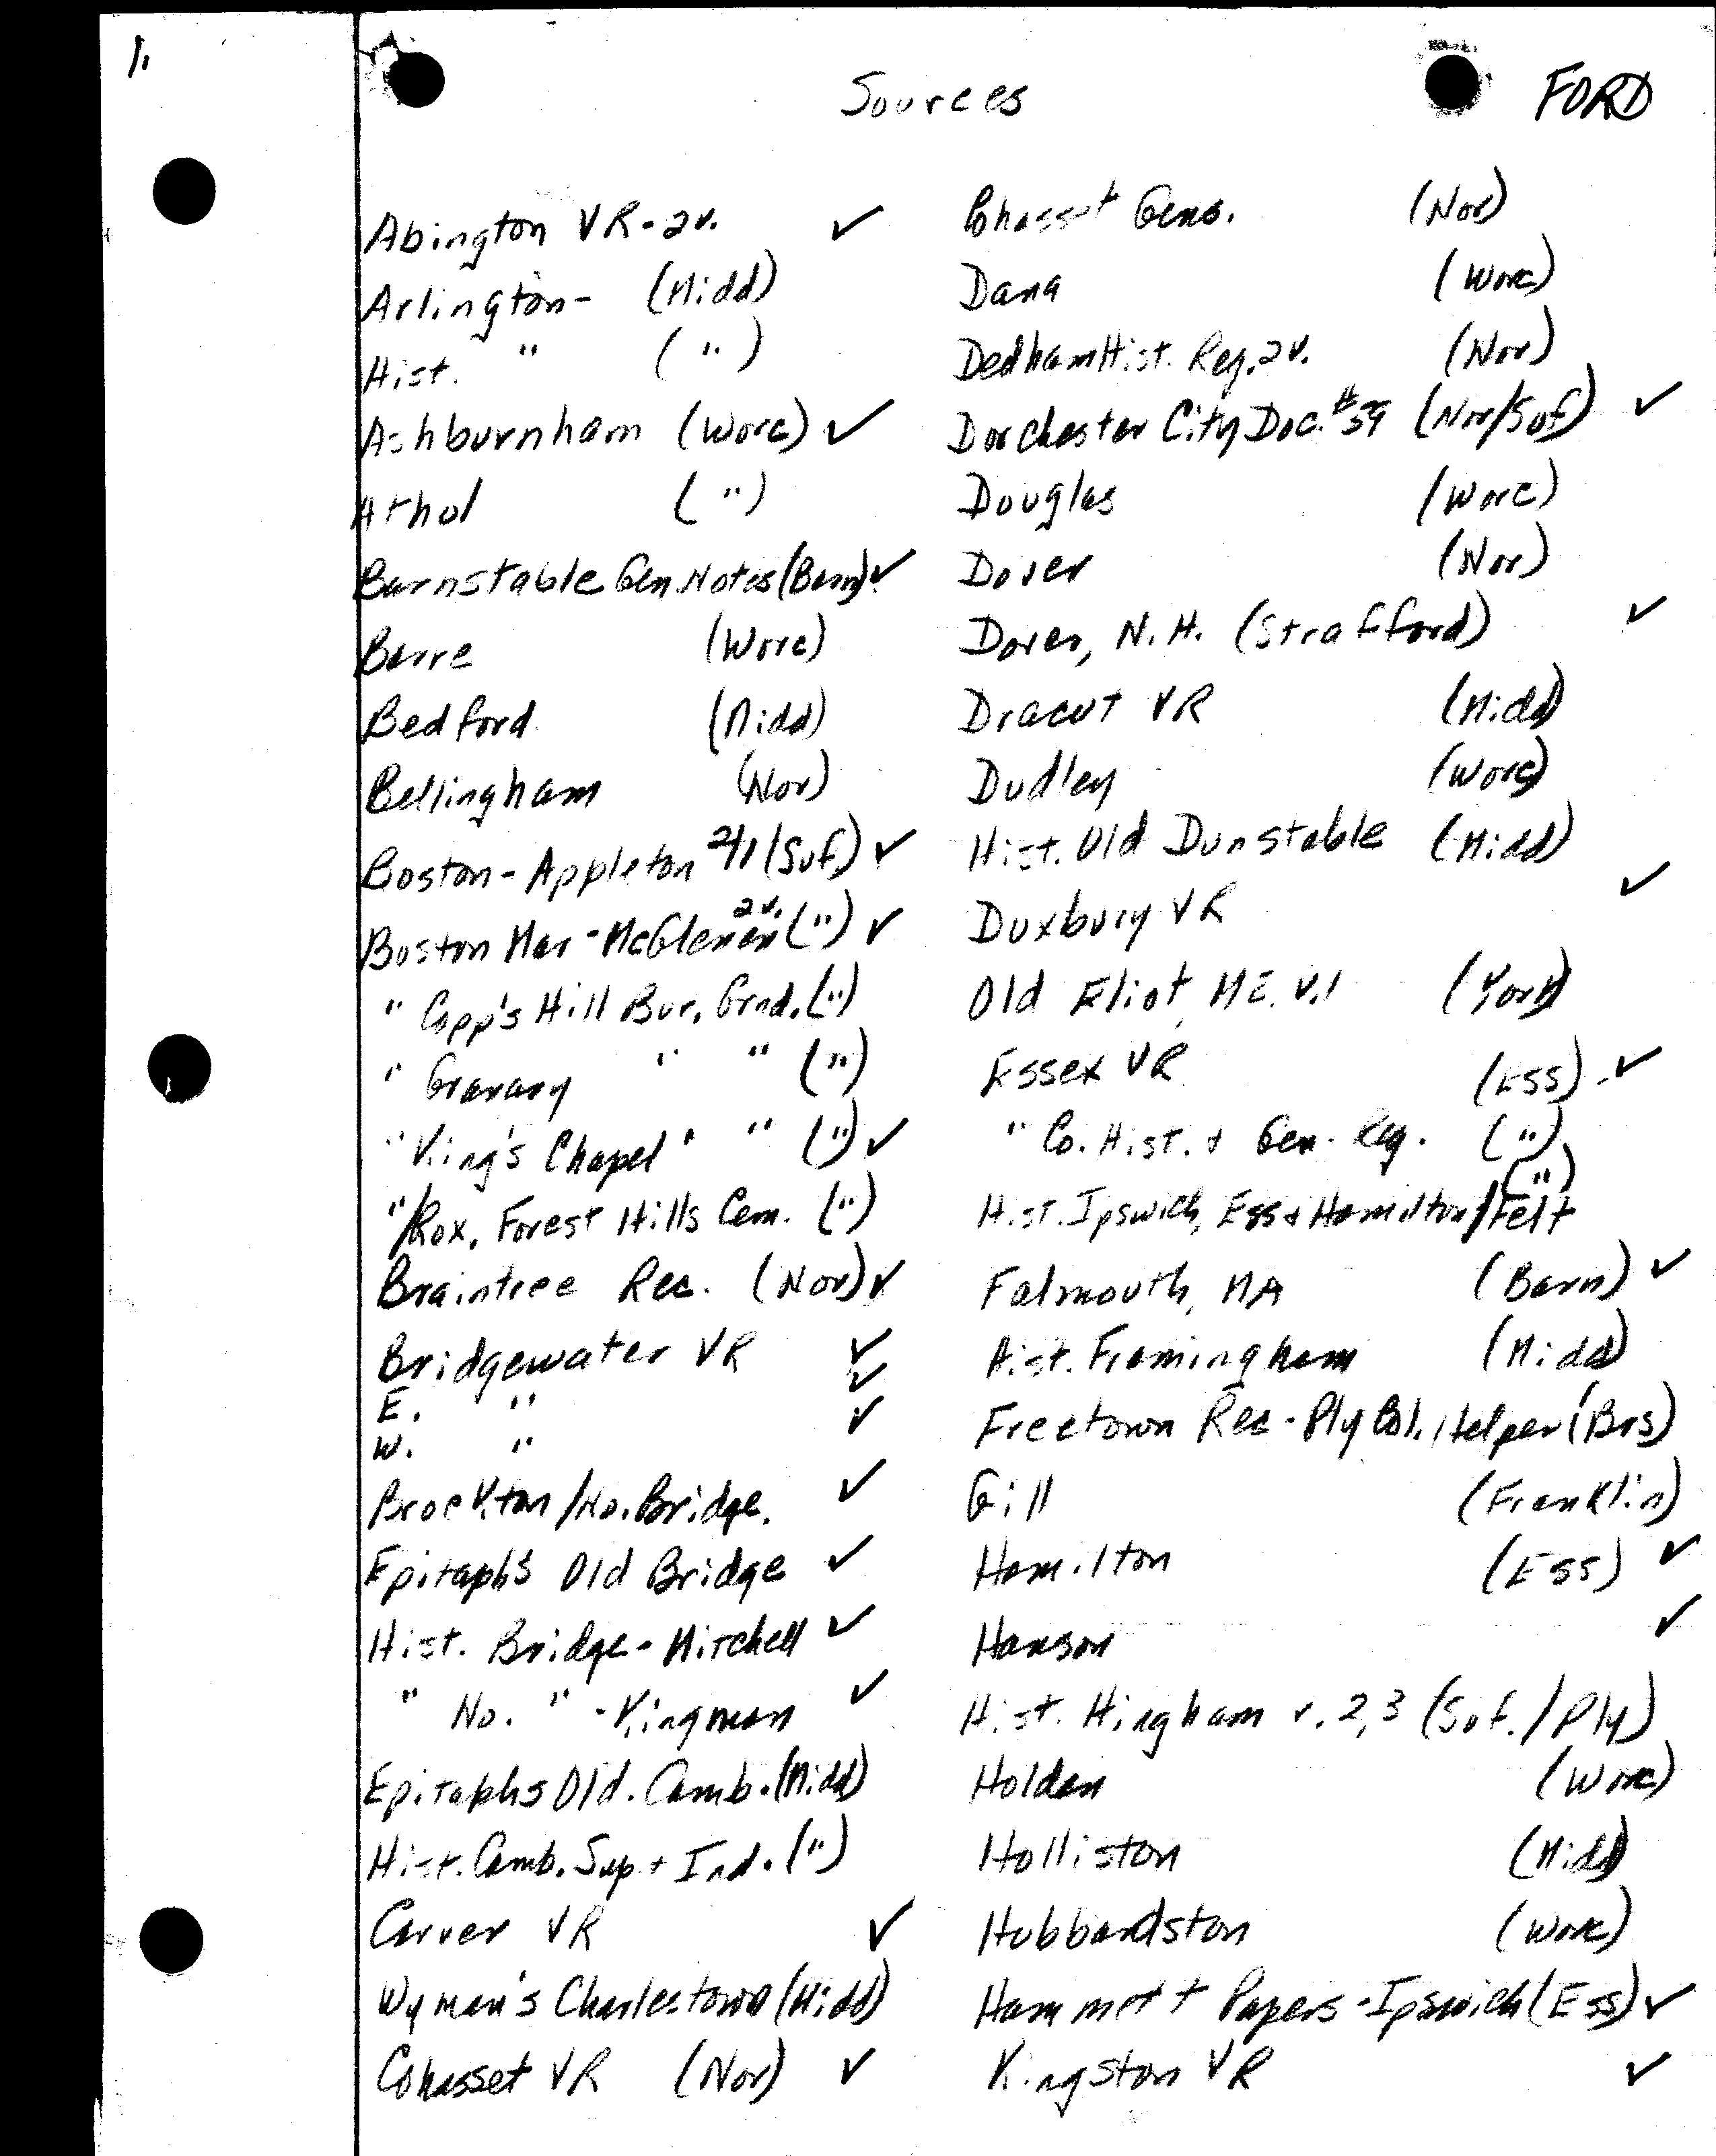 1.
Sources
FORD
Abington VR - 2v. ✓
Arlington - (Midd)
Hist. " (")
Ashburnham (Worc) ✓
Athol (")
Barnstable Gen. Notes (Barn) ✓
Barre (Worc)
Bedford (Midd)
Bellingham (Nor)
Boston - Appleton (Suf.) ✓
Boston Mar - McGlenen 2v. (") ✓
" Copp's Hill Bur. Grnd. (")
" Granary " " (")
" King's Chapel " " (") ✓
"/Rox. Forest Hills Cem. (")
Braintree Rec. (Nor) ✓
Bridgewater VR ✓
E. " ✓
W. " ✓
Brockton/No. Bridge. ✓
Epitaphs Old Bridge ✓
Hist. Bridge - Mitchell ✓
" No. " - Kingman ✓
Epitaphs Old. Camb. (Midd)
Hist. Camb. Sup + Ind. (")
Carver VR ✓
Wyman's Charlestown (Midd)
Cohasset VR (Nor) ✓
Cohasset Gens. (Nor)
Dana (Worc)
Dedham Hist. Reg. 2v. (Nor)
Dorchester City Doc. #59 (Nor/Suf) ✓
Douglas (Worc)
Dover (Nor)
Dover, N.H. (Strafford) ✓
Dracut VR (Midd)
Dudley (Worc)
Hist. Old Dunstable (Midd)
Duxbury VR ✓
Old Eliot, ME. v.1 (York)
Essex VR (Ess) ✓
" Co. Hist. + Gen. Reg. (")
Hist. Ipswich, Ess + Hamilton/Felt (")
Falmouth, MA (Barn) ✓
Hist. Framingham (Midd)
Freetown Rec - Ply Col. Helper (Brs)
Gill (Franklin)
Hamilton (Ess) ✓
Hanson ✓
Hist. Hingham v. 2,3 (Suf./Ply)
Holden (Worc)
Holliston (Midd)
Hubbardston (Worc)
Hammett Papers - Ipswich (Ess) ✓
Kingston VR ✓